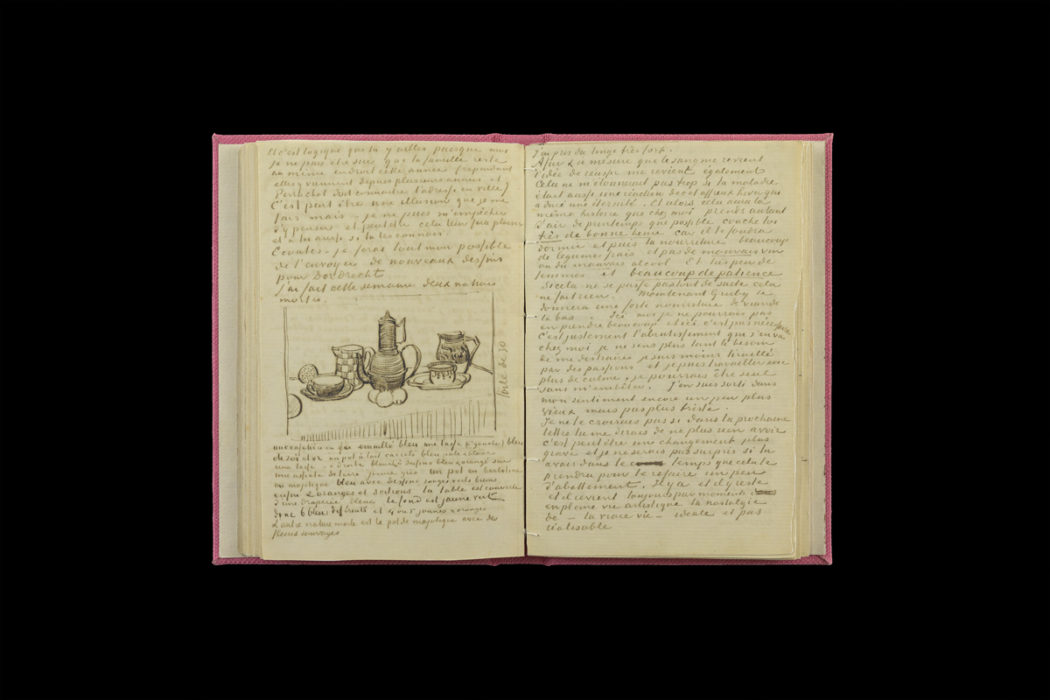 Et c'est logique que tu y ailles puisque moi
je ne puis être sûr que la famille reste
au même endroit cette année (cependant
elles y viennent depuis plusieurs années et
doit connaître l'adresse en ville)
C'est peut être une illusion que je me
fais mais – je ne puis m'empêcher
d'y penser et peut être cela leur fera plaisir
et à toi aussi si tu les connais.
Écoutes – je ferai tout mon possible
de t'envoyer de nouveaux dessins
pour Dordrecht
J'ai fait cette semaine deux natures
mortes.
toile de 30
une cafetière en fer émaillé bleu une tasse (à gauche) bleu
de roi et or un pot à lait carrelé bleu pâle et blanc
une tasse – à droite blanche dessins bleus & orangés sur
une assiette de terre jaune gris un pot en barbotine
ou majolique bleu avec dessins rouges verts bruns
enfin 2 oranges et 3 citrons la table est couverte
d'une draperie bleue le fond est jaune vert
donc 6 bleus différents et 4 ou 5 jaunes & orangés
L'autre nature morte est le pot de majolique avec des
fleurs sauvages
J'ai pris du linge très fort.
A fur & à mesure que le sang me revient
l'idée de réussir me revient également
Cela ne m'étonnerait pas trop si ta maladie
était aussi une réaction de cet affreux hiver qui
a duré une éternité. Et alors cela aura la
même histoire que chez moi prends autant
d'air de printemps que possible couche toi
très de bonne heure car il te faudra
dormir et puis la nourriture beaucoup
de légumes frais et pas de mauvais vin
ou du mauvais alcool Et très peu de
femmes et beaucoup de patience
Si cela ne se passe pas tout de suite cela
ne fait rien. Maintenant Gruby te
donnera une forte nourriture de viande
là bas. Ici moi je ne pourrais pas
en prendre beaucoup et ici c'est pas nécessaire
C'est justement l'abrutissement qui s'en va
chez moi je ne sens plus tant le besoin
de me distraire je suis moins tiraillé
par des passions et je puis travailler avec
plus de calme, je pourrais être seul
sans m'embêter. J'en suis sorti dans
mon sentiment encore un peu plus
vieux mais pas plus triste.
Je ne te croirais pas si dans ta prochaine
lettre tu me dirais de ne plus rien avoir
c'est peut être un changement plus
grave et je ne serais pas surpris si tu
avais dans le temps que cela te
prendra pour te refaire un peu
d'abattement. Il y a et il y reste
et il revient toujours par moments
en pleine vie artistique la nostalgie
de – la vraie vie – idéale et pas
réalisable